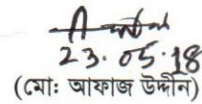 23.05.18
(মোঃ আফাজ উদ্দীন)